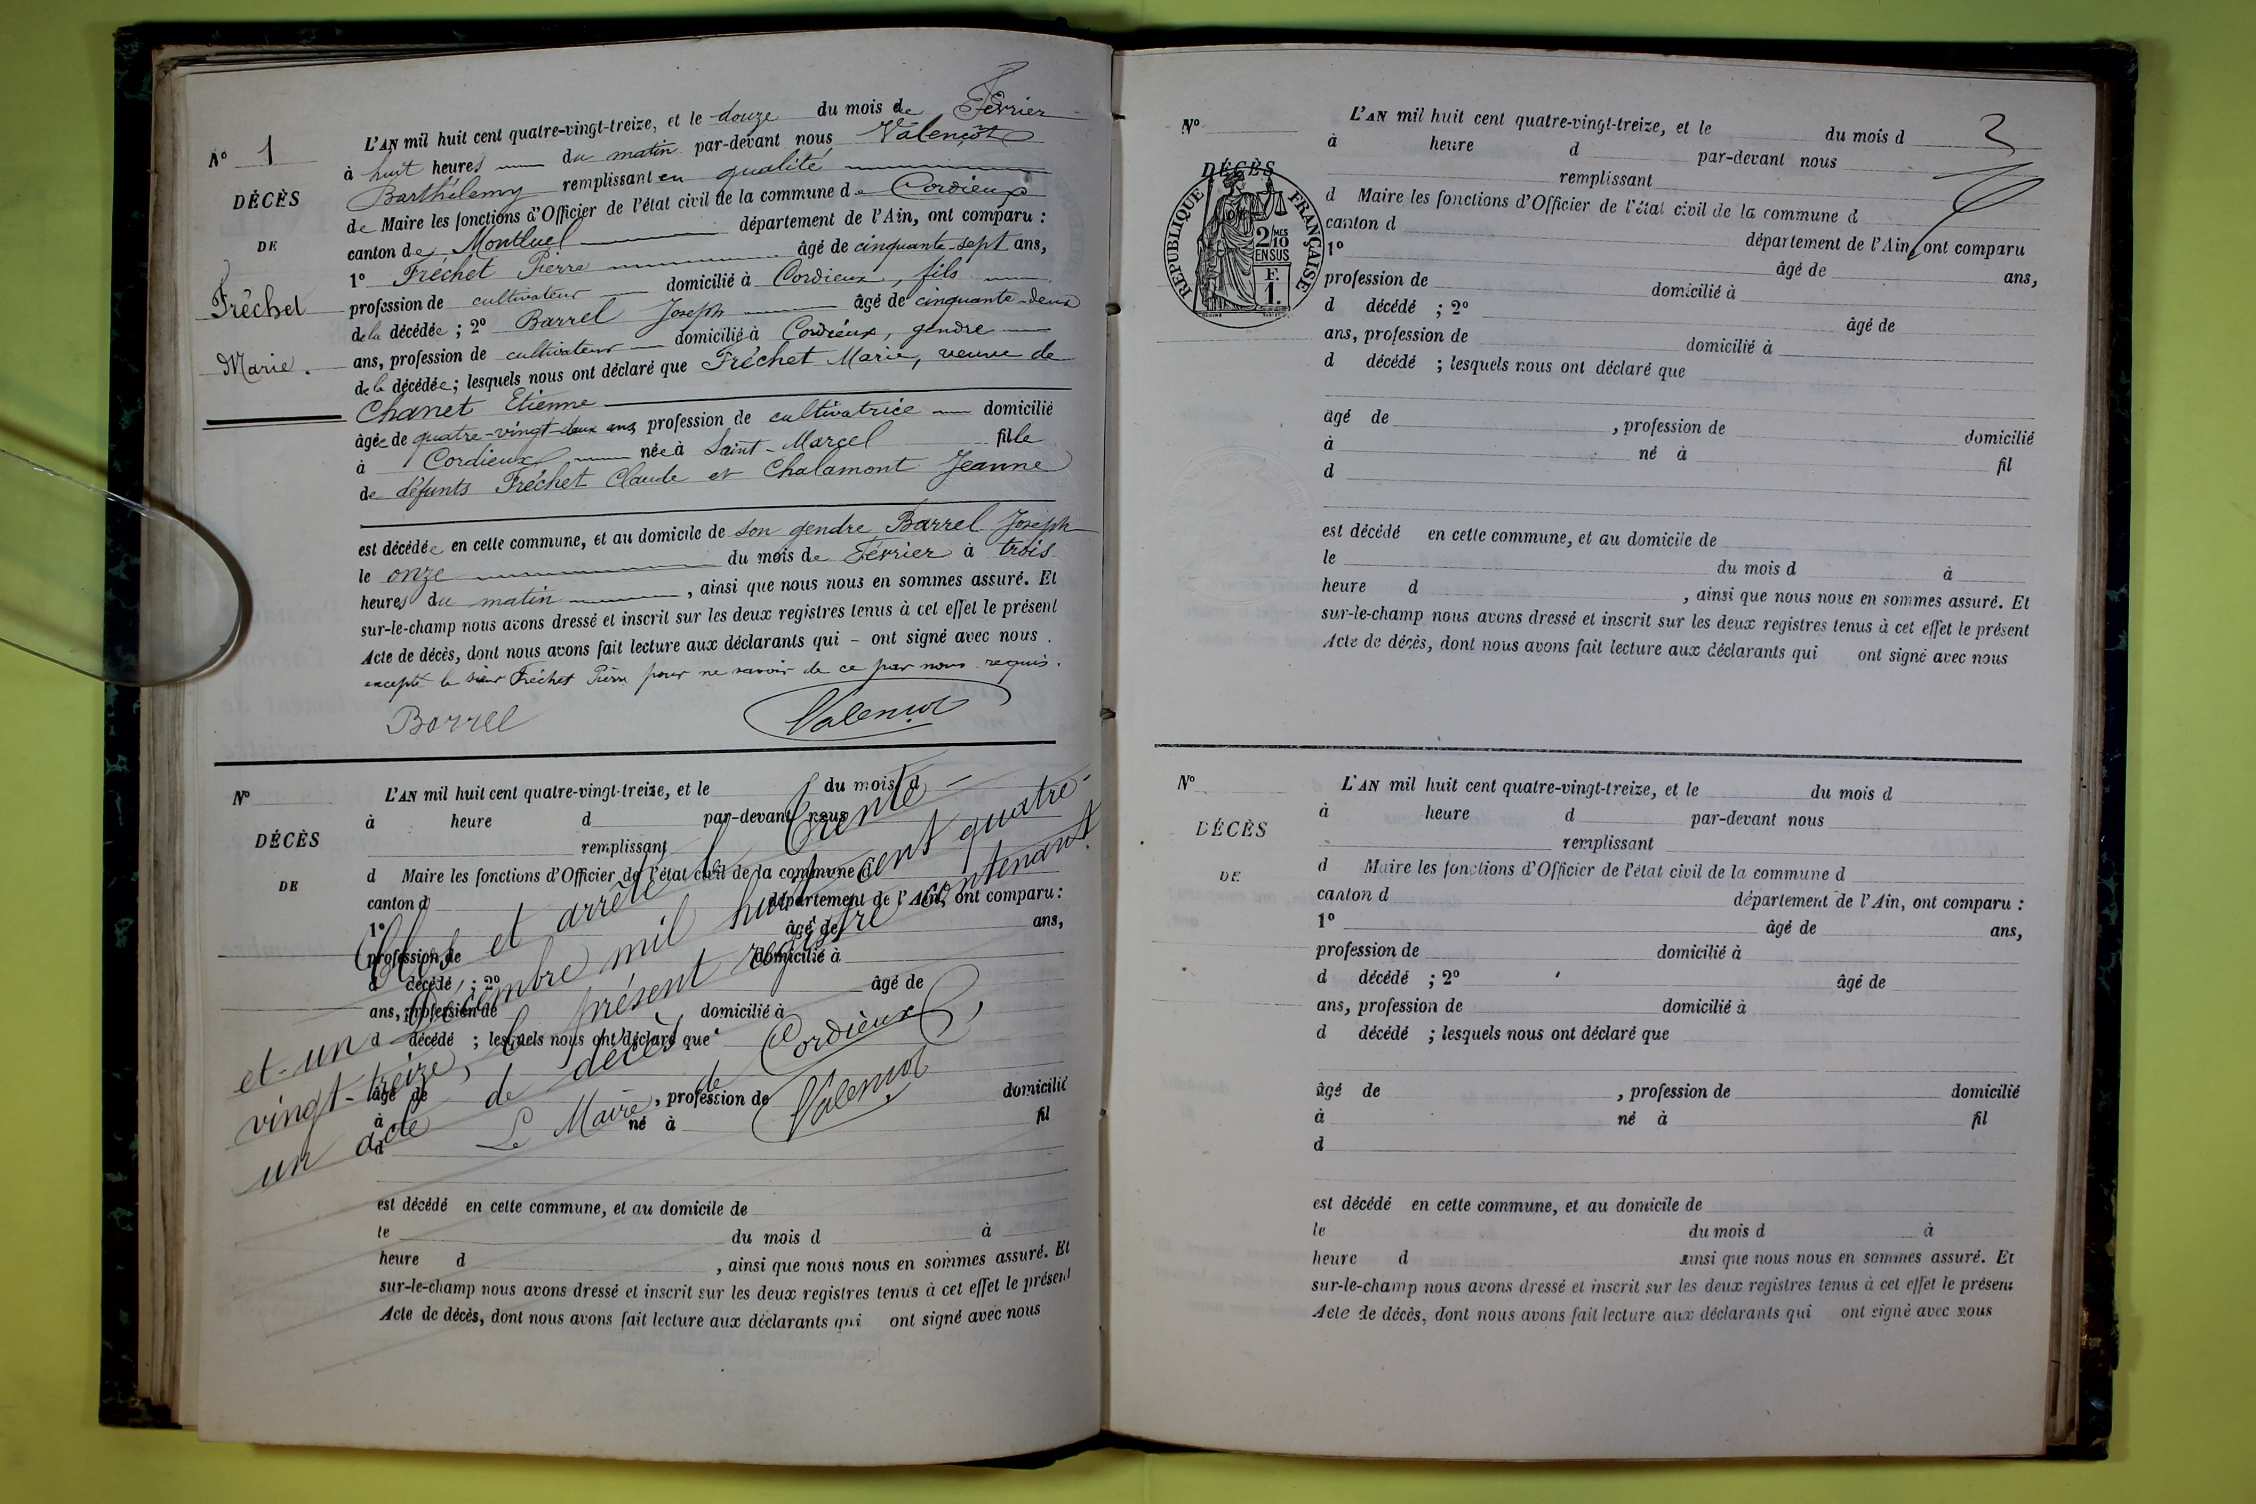 N° 1
DÉCÈS
DE
Fréchet
Marie.
L'AN mil huit cent quatre-vingt-treize, et le douze du mois de Février
à huit heures du matin par-devant nous Valençot
Barthélemy remplissant en qualité
de Maire les fonctions d'Officier de l'état civil de la commune de Cordieux
canton de Montluel département de l'Ain, ont comparu :
1° Fréchet Pierre âgé de cinquante-sept ans,
profession de cultivateur domicilié à Cordieux, fils
de la décédée ; 2° Barrel Joseph âgé de cinquante-deux
ans, profession de cultivateur domicilié à Cordieux, gendre
de la décédée ; lesquels nous ont déclaré que Fréchet Marie, veuve de
Chanet Etienne
âgée de quatre-vingt-deux ans, profession de cultivatrice domicilié
à Cordieux née à Saint-Marcel fille
de défunts Fréchet Claude et Chalamont Jeanne
est décédée en cette commune, et au domicile de son gendre Barrel Joseph
le onze du mois de Février à trois
heures du matin, ainsi que nous nous en sommes assuré. Et
sur-le-champ nous avons dressé et inscrit sur les deux registres tenus à cet effet le présent
Acte de décès, dont nous avons fait lecture aux déclarants qui - ont signé avec nous.
excepté le sieur Fréchet Pierre pour ne savoir de ce par nous requis.
Barrel Valençot
N°
DÉCÈS
DE
L'AN mil huit cent quatre-vingt-treize, et le du mois d
à heure d par-devant nous
remplissant
d Maire les fonctions d'Officier de l'état civil de la commune d
canton d département de l'Ain, ont comparu :
1° âgé de ans,
profession de domicilié à
d décédé ; 2° âgé de
ans, profession de domicilié à
d décédé ; lesquels nous ont déclaré que
âgé de , profession de domicilié
à né à fil
d
est décédé en cette commune, et au domicile de
le du mois d à
heure d , ainsi que nous nous en sommes assuré. Et
sur-le-champ nous avons dressé et inscrit sur les deux registres tenus à cet effet le présent
Acte de décès, dont nous avons fait lecture aux déclarants qui ont signé avec nous
Clos et arrêté le trente-
et-un Décembre mil huit-cent quatre-
vingt-treize, le présent registre contenant
un acte de décès.
Le Maire de Cordieux,
Valençot
3
N°
DÉCÈS
RÉPUBLIQUE FRANÇAISE
2/10 MES
EN SUS
F.
1.
L'AN mil huit cent quatre-vingt-treize, et le du mois d
à heure d par-devant nous
remplissant
d Maire les fonctions d'Officier de l'état civil de la commune d
canton d département de l'Ain, ont comparu
1° âgé de ans,
profession de domicilié à
d décédé ; 2° âgé de
ans, profession de domicilié à
d décédé ; lesquels nous ont déclaré que
âgé de , profession de domicilié
à né à fil
d
est décédé en cette commune, et au domicile de
le du mois d à
heure d , ainsi que nous nous en sommes assuré. Et
sur-le-champ nous avons dressé et inscrit sur les deux registres tenus à cet effet le présent
Acte de décès, dont nous avons fait lecture aux déclarants qui ont signé avec nous
N°
DÉCÈS
DE
L'AN mil huit cent quatre-vingt-treize, et le du mois d
à heure d par-devant nous
remplissant
d Maire les fonctions d'Officier de l'état civil de la commune d
canton d département de l'Ain, ont comparu :
1° âgé de ans,
profession de domicilié à
d décédé ; 2° âgé de
ans, profession de domicilié à
d décédé ; lesquels nous ont déclaré que
âgé de , profession de domicilié
à né à fil
d
est décédé en cette commune, et au domicile de
le du mois d à
heure d ainsi que nous nous en sommes assuré. Et
sur-le-champ nous avons dressé et inscrit sur les deux registres tenus à cet effet le présent
Acte de décès, dont nous avons fait lecture aux déclarants qui ont signé avec nous